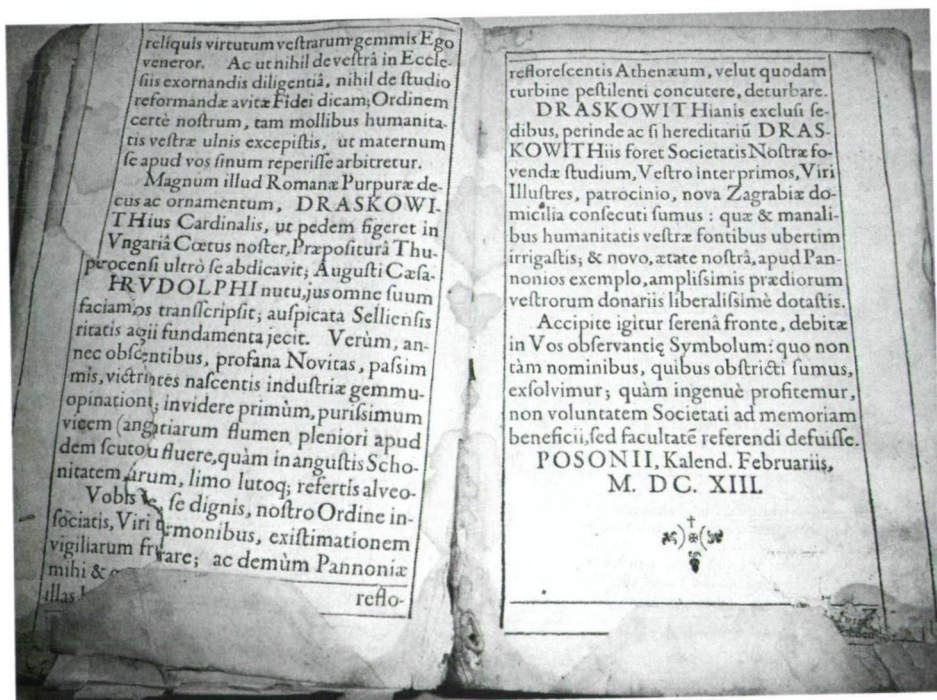 reliquis virtutum veſtrarum gemmis Ego
veneror. Ac ut nihil de veſtrâ in Eccle-
ſiis exornandis diligentiâ, nihil de ſtudio
reformandæ avitæ Fidei dicam; Ordinem
certè noſtrum, tam mollibus humanita-
tis veſtræ ulnis excepiſtis, ut maternum
ſe apud vos ſinum reperiſſe arbitretur.
Magnum illud Romanæ Purpuræ de-
cus ac ornamentum, DRASKOWI-
THius Cardinalis, ut pedem figeret in
Vngariâ Cœtus noſter, Præpoſiturâ Thu-
rocenſi ultrò ſe abdicavit; Auguſti Cæſa-
RVDOLPHI nutu, jus omne ſuum
faciam os tranſſcripſit; auſpicata Sellienſis
ritatis gii fundamenta jecit. Verùm, an-
nec obſ entibus, profana Novitas, paſſim
mis, victri tes naſcentis induſtriæ gemmu-
opinationi invidere primùm, puriſſimum
vicem (an tiarum flumen pleniori apud
dem ſcuto u fluere, quàm in anguſtis Scho-
nitatem, arum, limo lutoq; refertis alveo-
Vobis ſe dignis, noſtro Ordine in-
ſociatis, Viri rmonibus, exiſtimationem
vigiliarum fr are; ac demùm Pannoniæ
mihi &
illas
reflo-
refloreſcentis Athenæum, velut quodam
turbine peſtilenti concutere, deturbare.
DRASKOWITHianis excluſi ſe-
dibus, perinde ac ſi hereditariũ DRAS-
KOWITHiis foret Societatis Noſtræ fo-
vendæ ſtudium, Veſtro inter primos, Viri
Illuſtres, patrocinio, nova Zagrabiæ do-
micilia conſecuti ſumus: quæ & manali-
bus humanitatis veſtræ fontibus ubertim
irrigaſtis; & novo, ætate noſtrâ, apud Pan-
nonios exemplo, ampliſſimis prædiorum
veſtrorum donariis liberaliſſimè dotaſtis.
Accipite igitur ſerenâ fronte, debitæ
in Vos obſervantię Symbolum: quo non
tàm nominibus, quibus obſtricti ſumus,
exſolvimur; quàm ingenuè profitemur,
non voluntatem Societati ad memoriam
beneficii, ſed facultatẽ referendi defuiſſe.
POSONII, Kalend. Februariis,
M. DC. XIII.